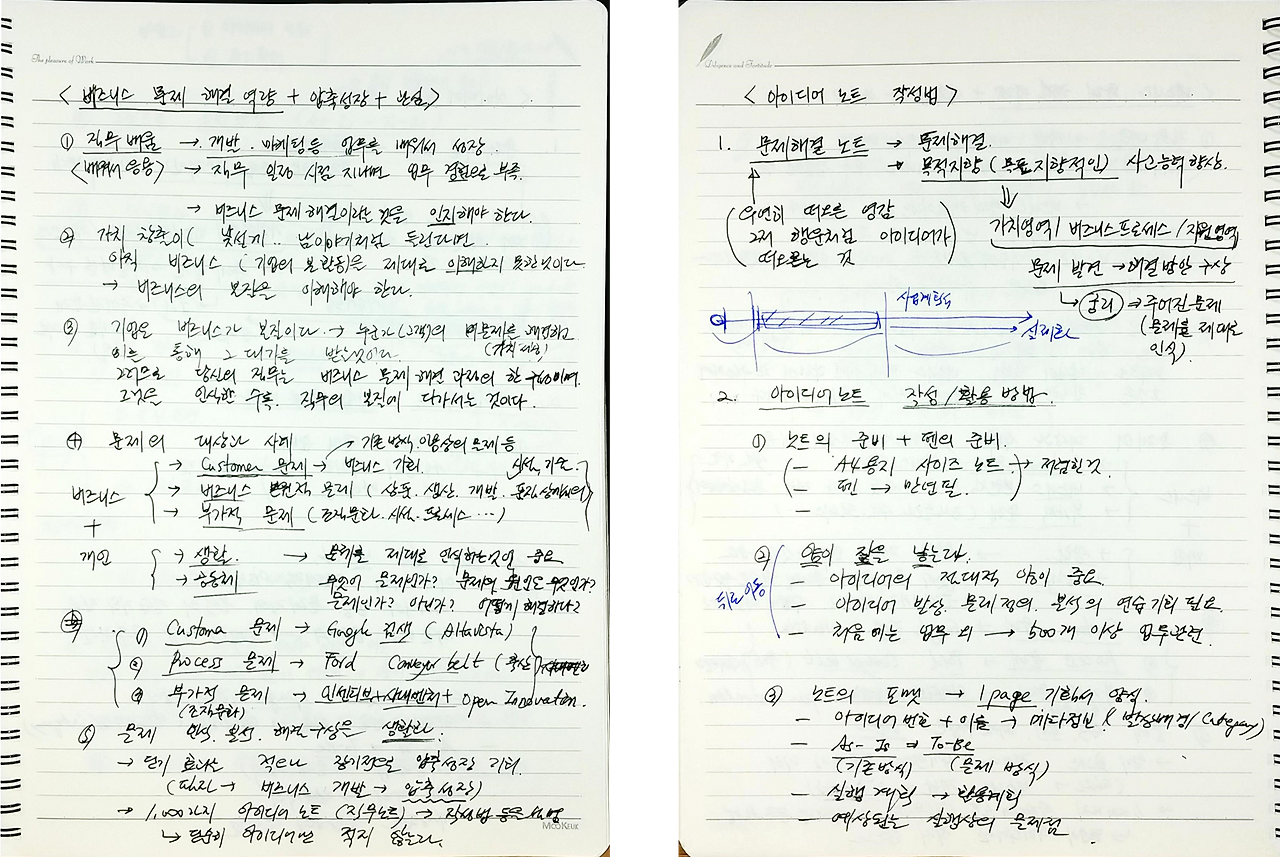 The pleasure of Work
< 비즈니스 문제 해결 역량 + 압축성장 + 보설 >
① 직무 배움 → 개발. 마케팅등 업무를 배워서 성장.
<배워서 응용> → 직무 일정 시점 지나면 업무 결핍으로 부족.
→ 비즈니스 문제 해결이라는 것을 인지해야 한다.
② 가치 창출이 ( 낯설게 .. 남이야기처럼 들린다면.
아직 비즈니스 (기업의 본 활동)은 제대로 이해하지 못한것이다.
→ 비즈니스의 본질을 이해해야 한다.
③ 기업은 비즈니스가 본질이다. → 누군가(고객)의 문제를 해결하고
(가치 제공)
이를 통해 그 대가를 받는것이다.
그러므로 당신의 직무는 비즈니스 문제 해결 과정의 한 이며.
그것을 인식한 수록. 직무의 본질에 다가서는 것이다.
④ 문제의 대상과 사례 → 기존방식, 이용상의 문제 등
→ Customer 문제 → 비즈니스 기회.
비즈니스 → 비즈니스 문제 ( 상품. 생산. 개발.
→ 부가적 문제 (조직문화. 시선. 프로세스 …)
+
개인 → 생활. → 문제를 제대로 인식하는것이 중요
→ 공동체 무엇이 문제인가? 문제의 원인은 무엇인가?
문제인가? 아닌가? 어떻게 해결하나?
1) Customer 문제 → Google 검색 (Altavista)
② Process 문제 → Ford Conveyor belt
③ 부가적 문제 → 인센티브 + 사내벤처 + Open Innovation.
(조직문화)
⑤ 문제 인식. 분석. 해결 구상은 생활화.
→ 단기 효과는 적으나 장기적으로 압축성장 기회.
( → 비즈니스 개발 → 압축성장)
→ 1,000가지 아이디어 노트 (직무노트) → 작성법 등은 설명
↳ 단순히 아이디어만 적지 않는다.
MOOKEUK
Diligence and Fortitude
< 아이디어 노트 작성법 >
1. 문제해결 노트 → 문제해결.
→ 목적지향 (목표지향적인) 사고능력 향상.
(우연히 떠오른 영감
그저 행운처럼 아이디어가
떠오르는 것)
가치영역 / 비즈니스 프로세스 / 지원영역
문제 발견 → 해결방안 구상
↳ 궁리 → 주어진 문제
(문제를 제대로
인식).
사업계획서
실제화
2. 아이디어노트 작성/활용 방법.
① 노트의 준비 + 펜의 준비.
- A4용지 사이즈 노트 → 적합한 것.
- 펜 → 만년필.
-
② 양이 질을 낳는다.
뒤로 이동
- 아이디어의 절대적 양이 중요.
- 아이디어 발상. 문제정의. 분석의 연습기회 필요.
- 처음에는 업무 외 → 500개 이상 업무관련.
③ 노트의 포맷 → 1 page 기획서 양식.
- 아이디어 번호 + 이름 → 메타정보 & 발상배경/Category)
- As-Is ⇒ To-Be
(기존방식) (문제 방식)
- 실행 계획 →
- 예상되는 실행상의 문제점